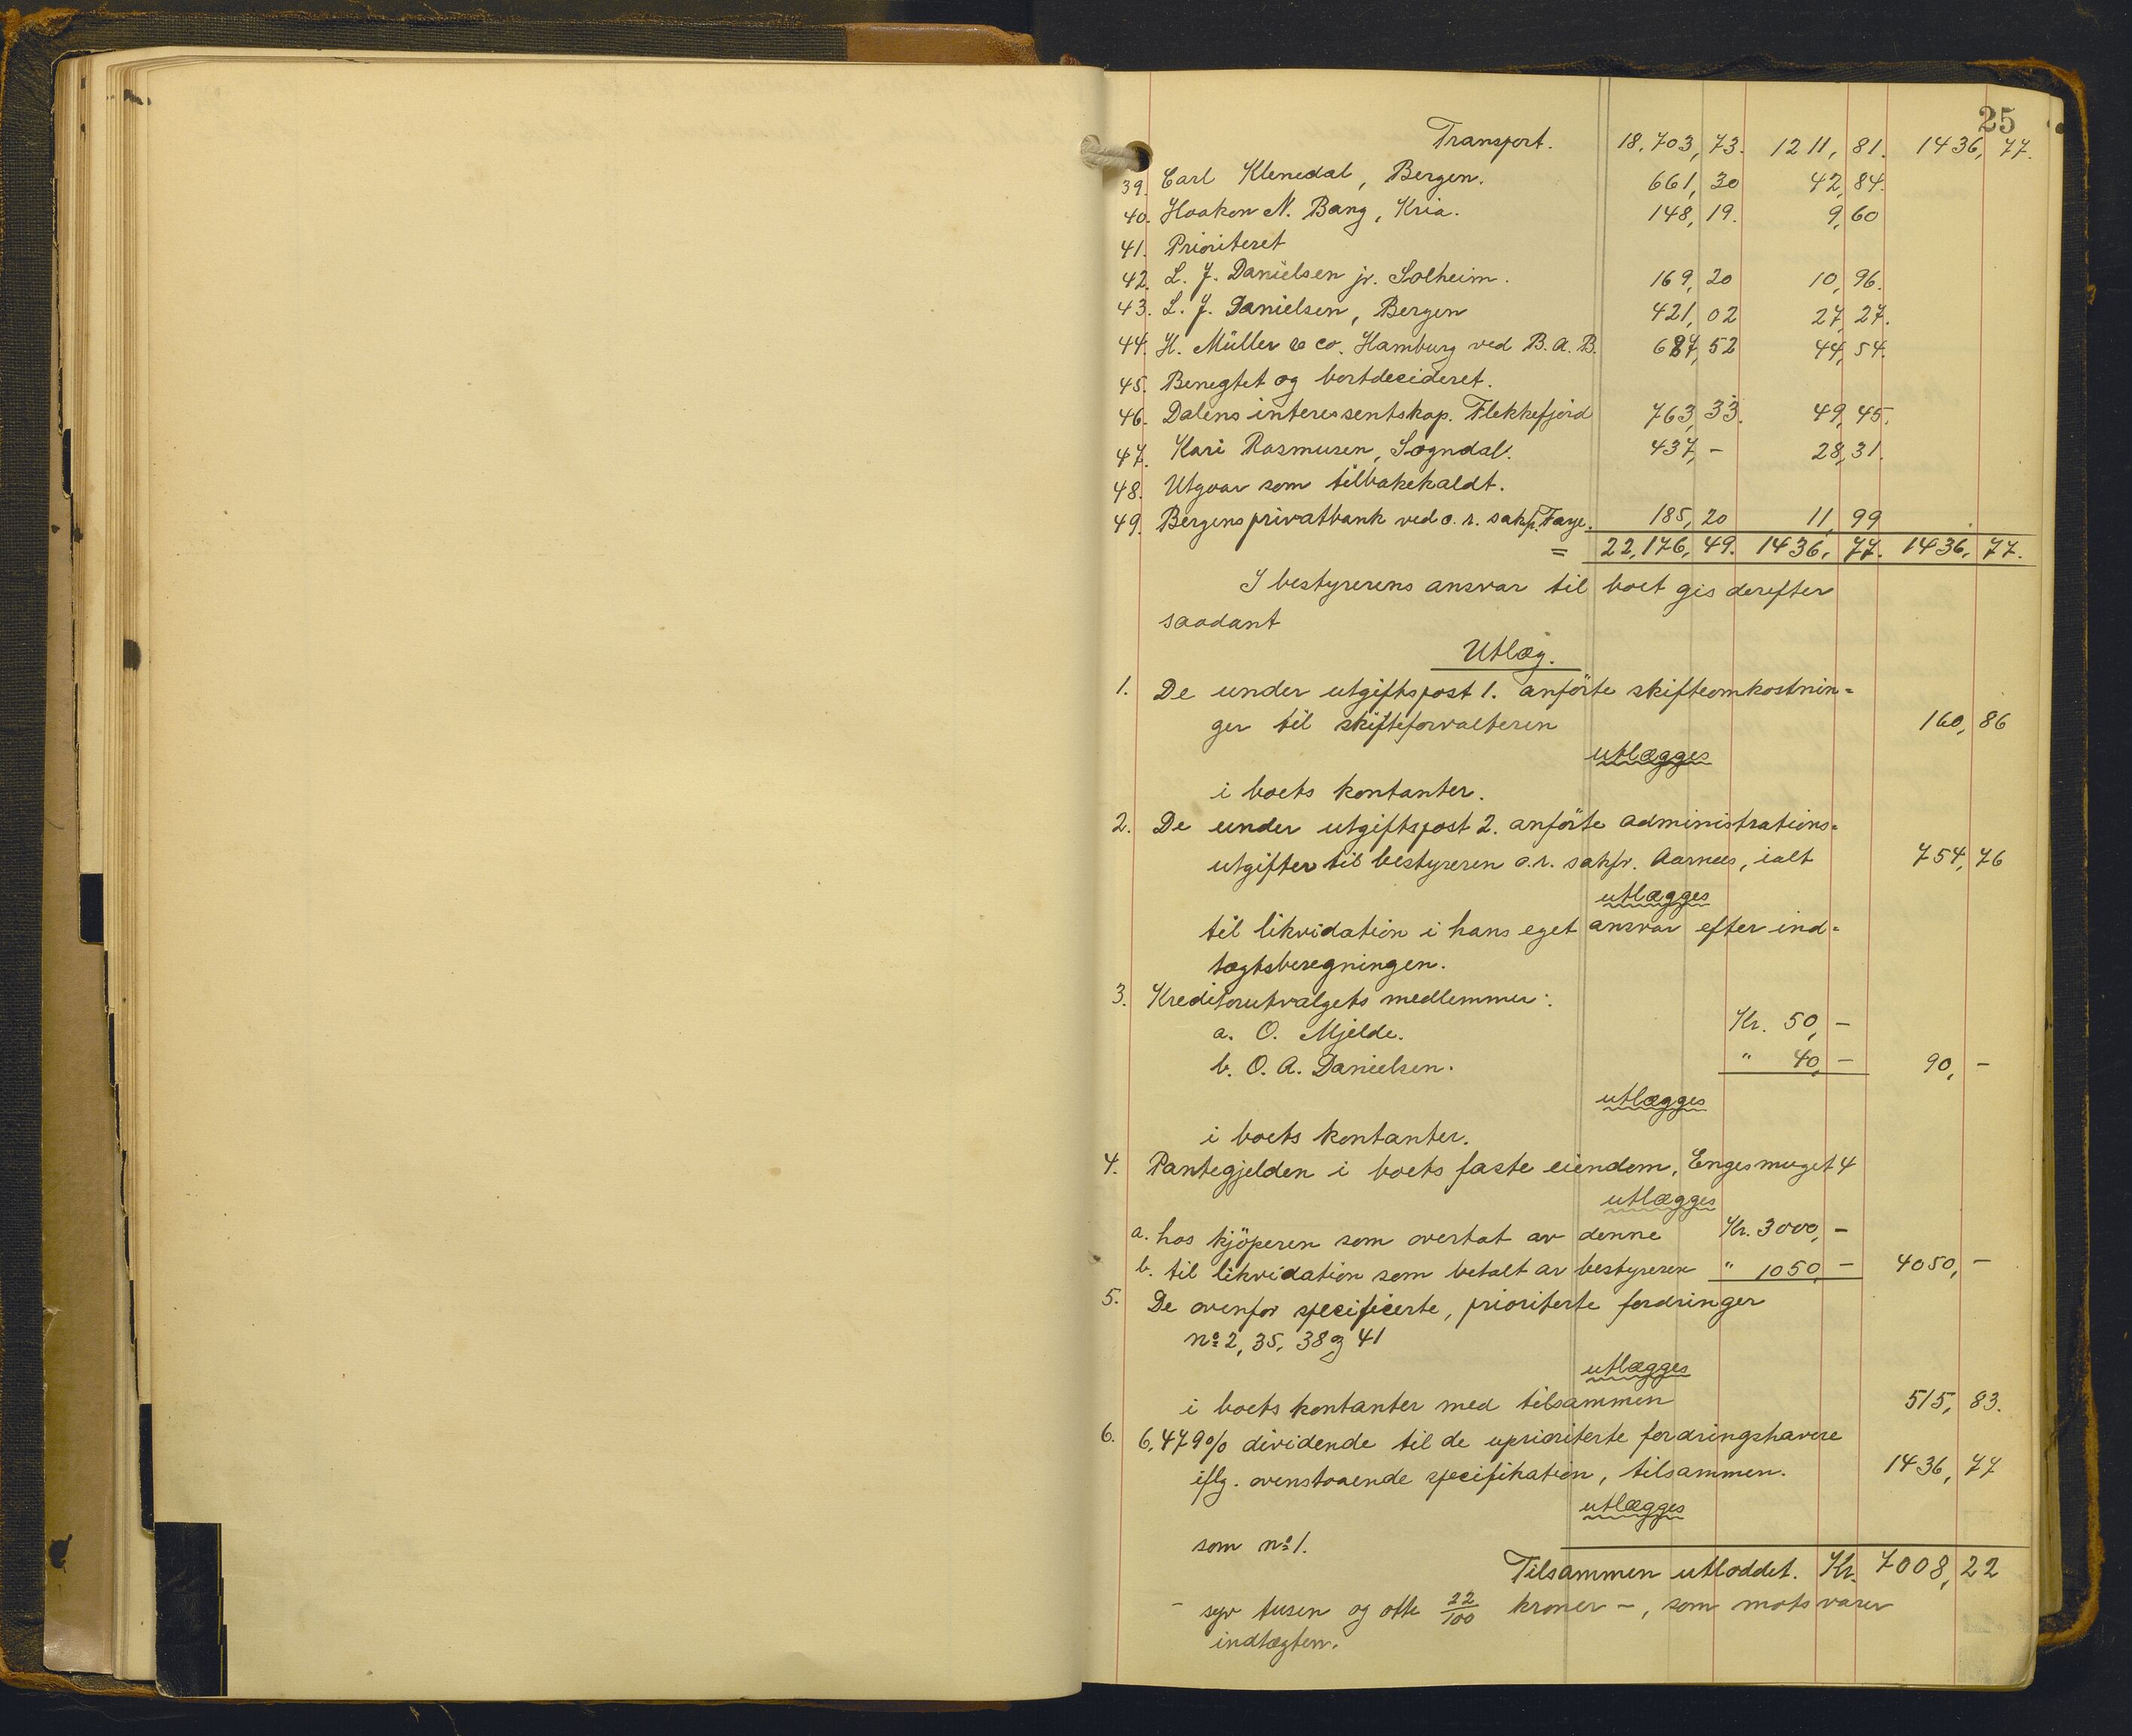 25
Transport. 18.703,73. 1211,81. 1436,77.
39. Carl Klenedal, Bergen. 661,30 42,84.
40. Haakon N. Bang, Kria. 148,19. 9,60
41. Prioriteret
42. L. J. Danielsen jr. Solheim. 169,20 10,96.
43. L. J. Danielsen, Bergen 421,02 27,27.
44. H. Müller & co. Hamburg ved B. A. B. 687,52 44,54.
45. Benegtet og bortdecideret.
46. Dalens interessentskap. Flekkefjord 763,33. 49,45.
47. Kari Rasmusen, Sogndal. 437,- 28,31.
48. Utgaar som tilbakekaldt.
49. Bergens privatbank ved o. r. sakf. Faye. 185,20 11,99
= 22,176,49. 1436,77. 1436,77.
I bestyrerens ansvar til boet gis derefter
saadant
Utlæg.
1. De under utgiftspost 1. anförte skifteomkostnin=
ger til skifteforvalteren 160,86
utlægges
i boets kontanter.
2. De under utgiftspost 2. anförte administrations=
utgifter til bestyreren o. r. sakfr. Aarnes, ialt 754,76
utlægges
til likvidation i hans eget ansvar efter ind=
tægtsberegningen.
3. Kreditorutvalgets medlemmer:
a. O. Mjelde. Kr. 50,-
b. O. A. Danielsen. " 40,- 90,-
utlægges
i boets kontanter.
4. Pantegjelden i boets faste eiendom, Engesmuget 4
utlægges
a. hos kjöperen som overtat av denne Kr. 3000,-
b. til likvidation som betalt av bestyreren " 1050,- 4050,-
5. De ovenfor specificerte, prioriterte fordringer
nº 2, 35, 38 og 41
utlægges
i boets kontanter med tilsammen 515,83.
6. 6,479% dividende til de uprioriterte fordringshavere
iflg. ovenstaaende specifikation, tilsammen. 1436,77
utlægges
som nº 1.
Tilsammen utloddet. Kr. 7008,22
- syv tusen og otte 22/100 kroner -, som motsvarer
indtægten.